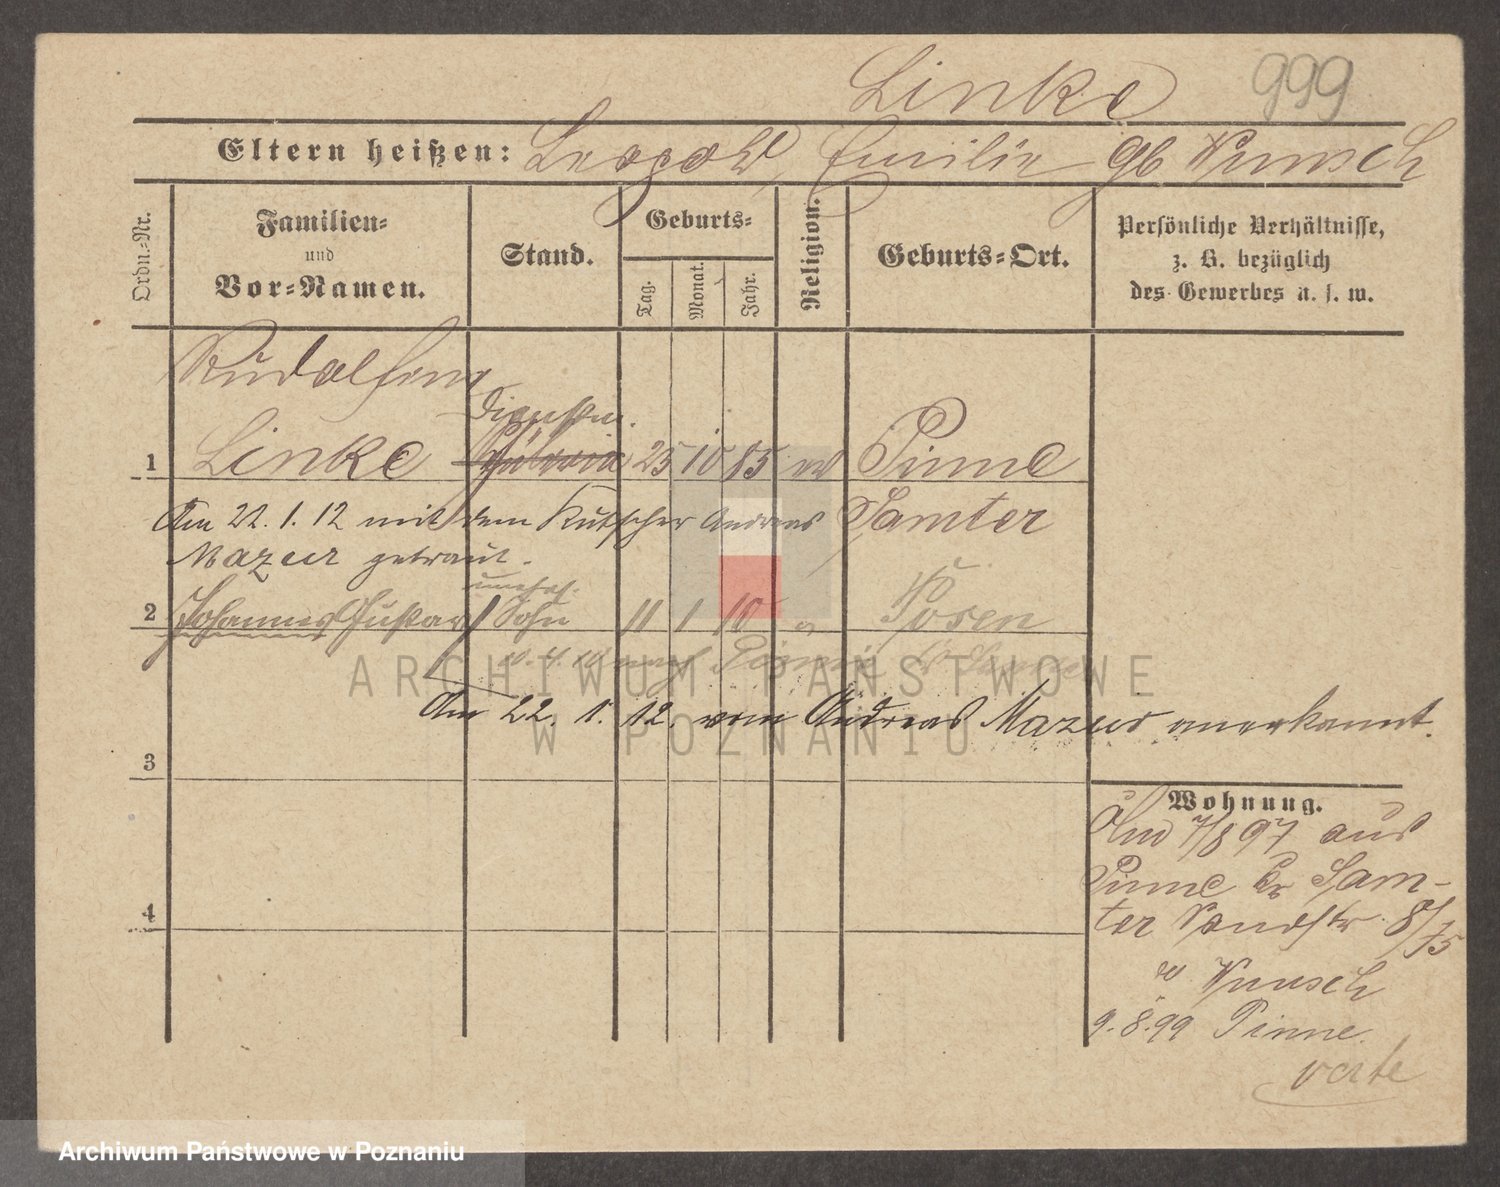 Linke 999
Eltern heißen: Leopold, Emilie gb Wunsch
Ordn.-Nr.
Familien-
und
Vor-Namen.
Stand.
Geburts-
Tag.
Monat.
Jahr.
Religion.
Geburts-Ort.
Persönliche Verhältnisse,
z. B. bezüglich
des Gewerbes u. s. w.
Rudolfine
1 Linke 25 10 85 ev Pinne
Am 22. 1. 12 mit dem Kutscher Andreas Samter
Mazur getraut.
unehel.
2 Johannes Gustav Sohn 11 1 10 Posen
Am 22. 1. 12. vom Andreas Mazur anerkannt.
3
Wohnung.
7/8 97 aus
Pinne Kr Sam-
ter 8/75
Wunsch
4
9. 8. 99 Pinne.
verte
ARCHIWUM PAŃSTWOWE
W POZNANIU
Archiwum Państwowe w Poznaniu